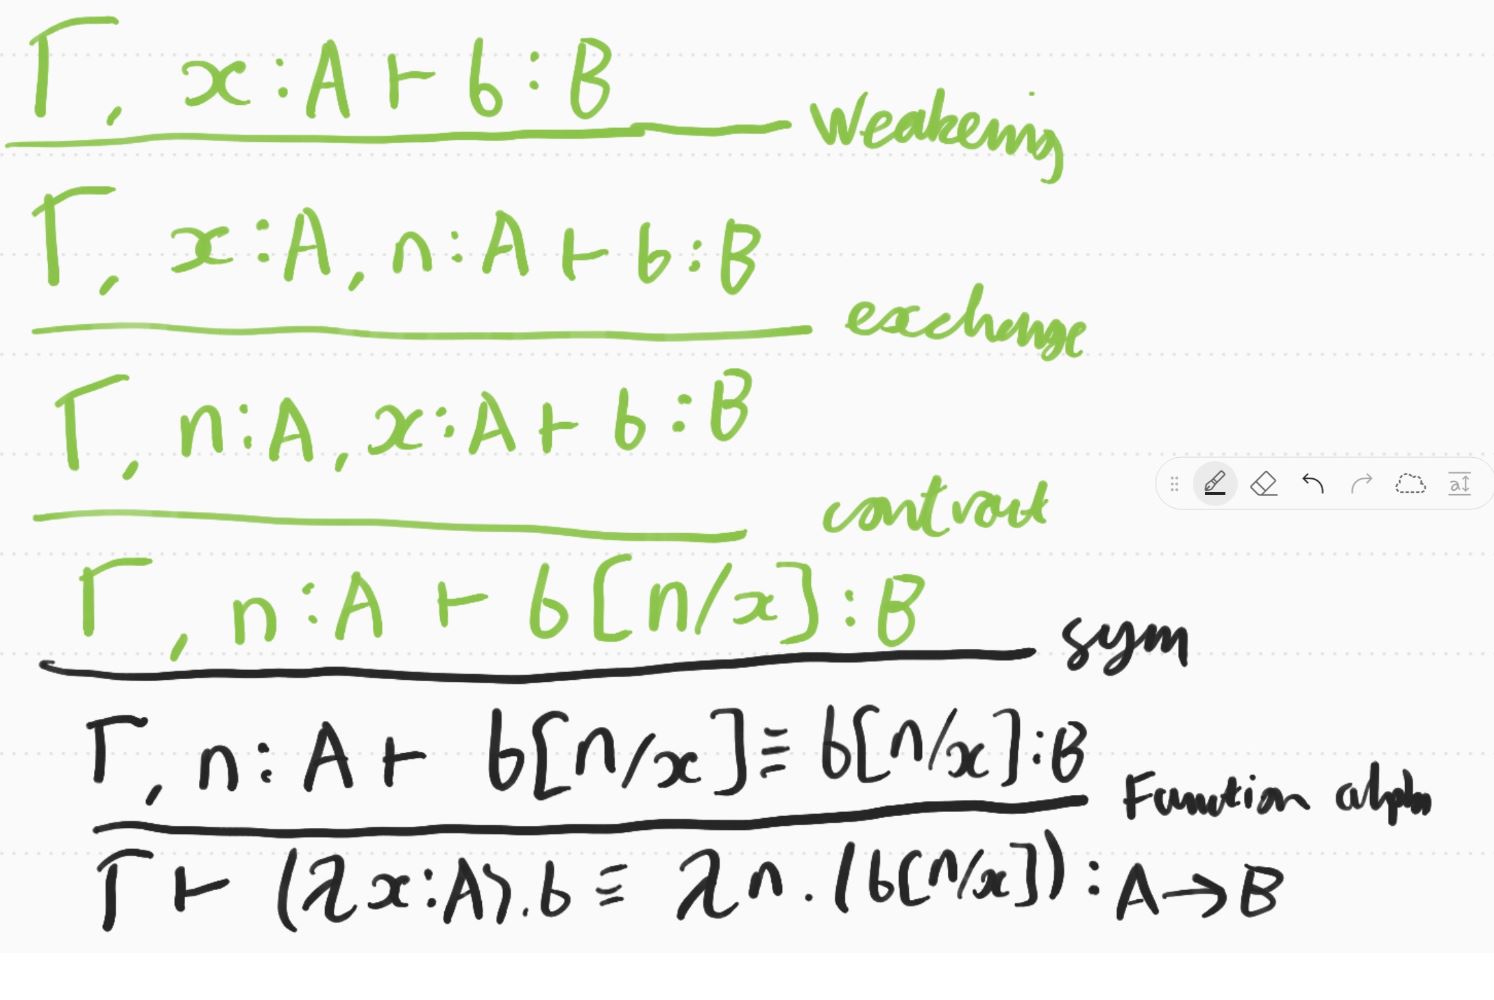 Γ, x : A ⊢ b : B
weakening
Γ, x : A, n : A ⊢ b : B
exchange
Γ, n : A, x : A ⊢ b : B
contract
Γ, n : A ⊢ b[n/x] : B
sym
Γ, n : A ⊢ b[n/x] ≡ b[n/x] : B
Function alpha
Γ ⊢ (λx : A).b ≡ λn.(b[n/x]) : A → B